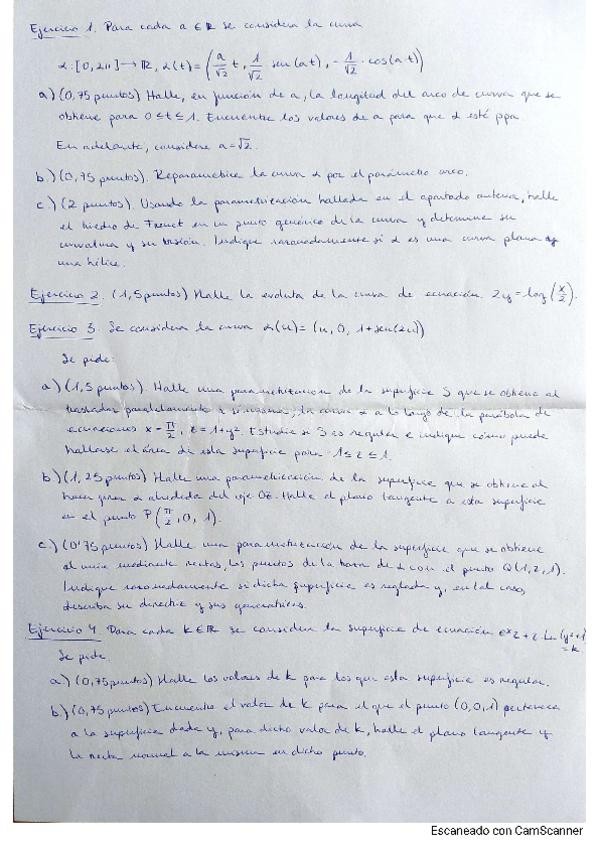 Ejercicio 1. Para cada a ∈ R se considera la curva
α: [0, 2π] → R, α(t) = (a/√2 t, 1/√2 sen(at), -1/√2 · cos(a·t))
a) (0,75 puntos) Halle, en función de a, la longitud del arco de curva que se
obtiene para 0 ≤ t ≤ 1. Encuentre los valores de a para que α esté ppa.
En adelante, considere a = √2.
b.) (0,75 puntos). Reparametrice la curva α por el parámetro arco.
c.) (2 puntos). Usando la parametrización hallada en el apartado anterior, halle
el triedro de Frenet en un punto genérico de la curva y determine su
curvatura y su torsión. Indique razonadamente si α es una curva plana y
una hélice.
Ejercicio 2. (1,5 puntos) Halle la evoluta de la curva de ecuación 2y = log(x/2).
Ejercicio 3. Se considera la curva α(u) = (u, 0, 1+sen(2u))
Se pide:
a) (1,5 puntos). Halle una parametrización de la superficie S que se obtiene al
trasladar paralelamente a si misma, la curva α a lo largo de la parábola de
ecuaciones x = π/2, z = 1+y². Estudie si S es regular e indique cómo puede
hallarse el área de esta superficie para 1 ≤ z ≤ 1.
b) (1,25 puntos) Halle una parametrización de la superficie que se obtiene al
hacer girar α alrededor del eje OZ. Halle el plano tangente a esta superficie
en el punto P(π/2, 0, 1).
c.) (0'75 puntos) Halle una parametrización de la superficie que se obtiene
al unir mediante rectas, los puntos de la traza de α con el punto Q(1,2,1).
Indique razonadamente si dicha superficie es reglada y, en tal caso,
describa su directriz y sus generatrices.
Ejercicio 4. Para cada k ∈ R se considera la superficie de ecuación e^x z + z Ln(y²+1) = k
Se pide
a) (0,75 puntos) Halle los valores de k para los que esta superficie es regular.
b) (0,75 puntos) Encuentre el valor de k para el que el punto (0,0,1) pertenece
a la superficie dada y, para dicho valor de k, halle el plano tangente y
la recta normal a la misma en dicho punto.
Escaneado con CamScanner